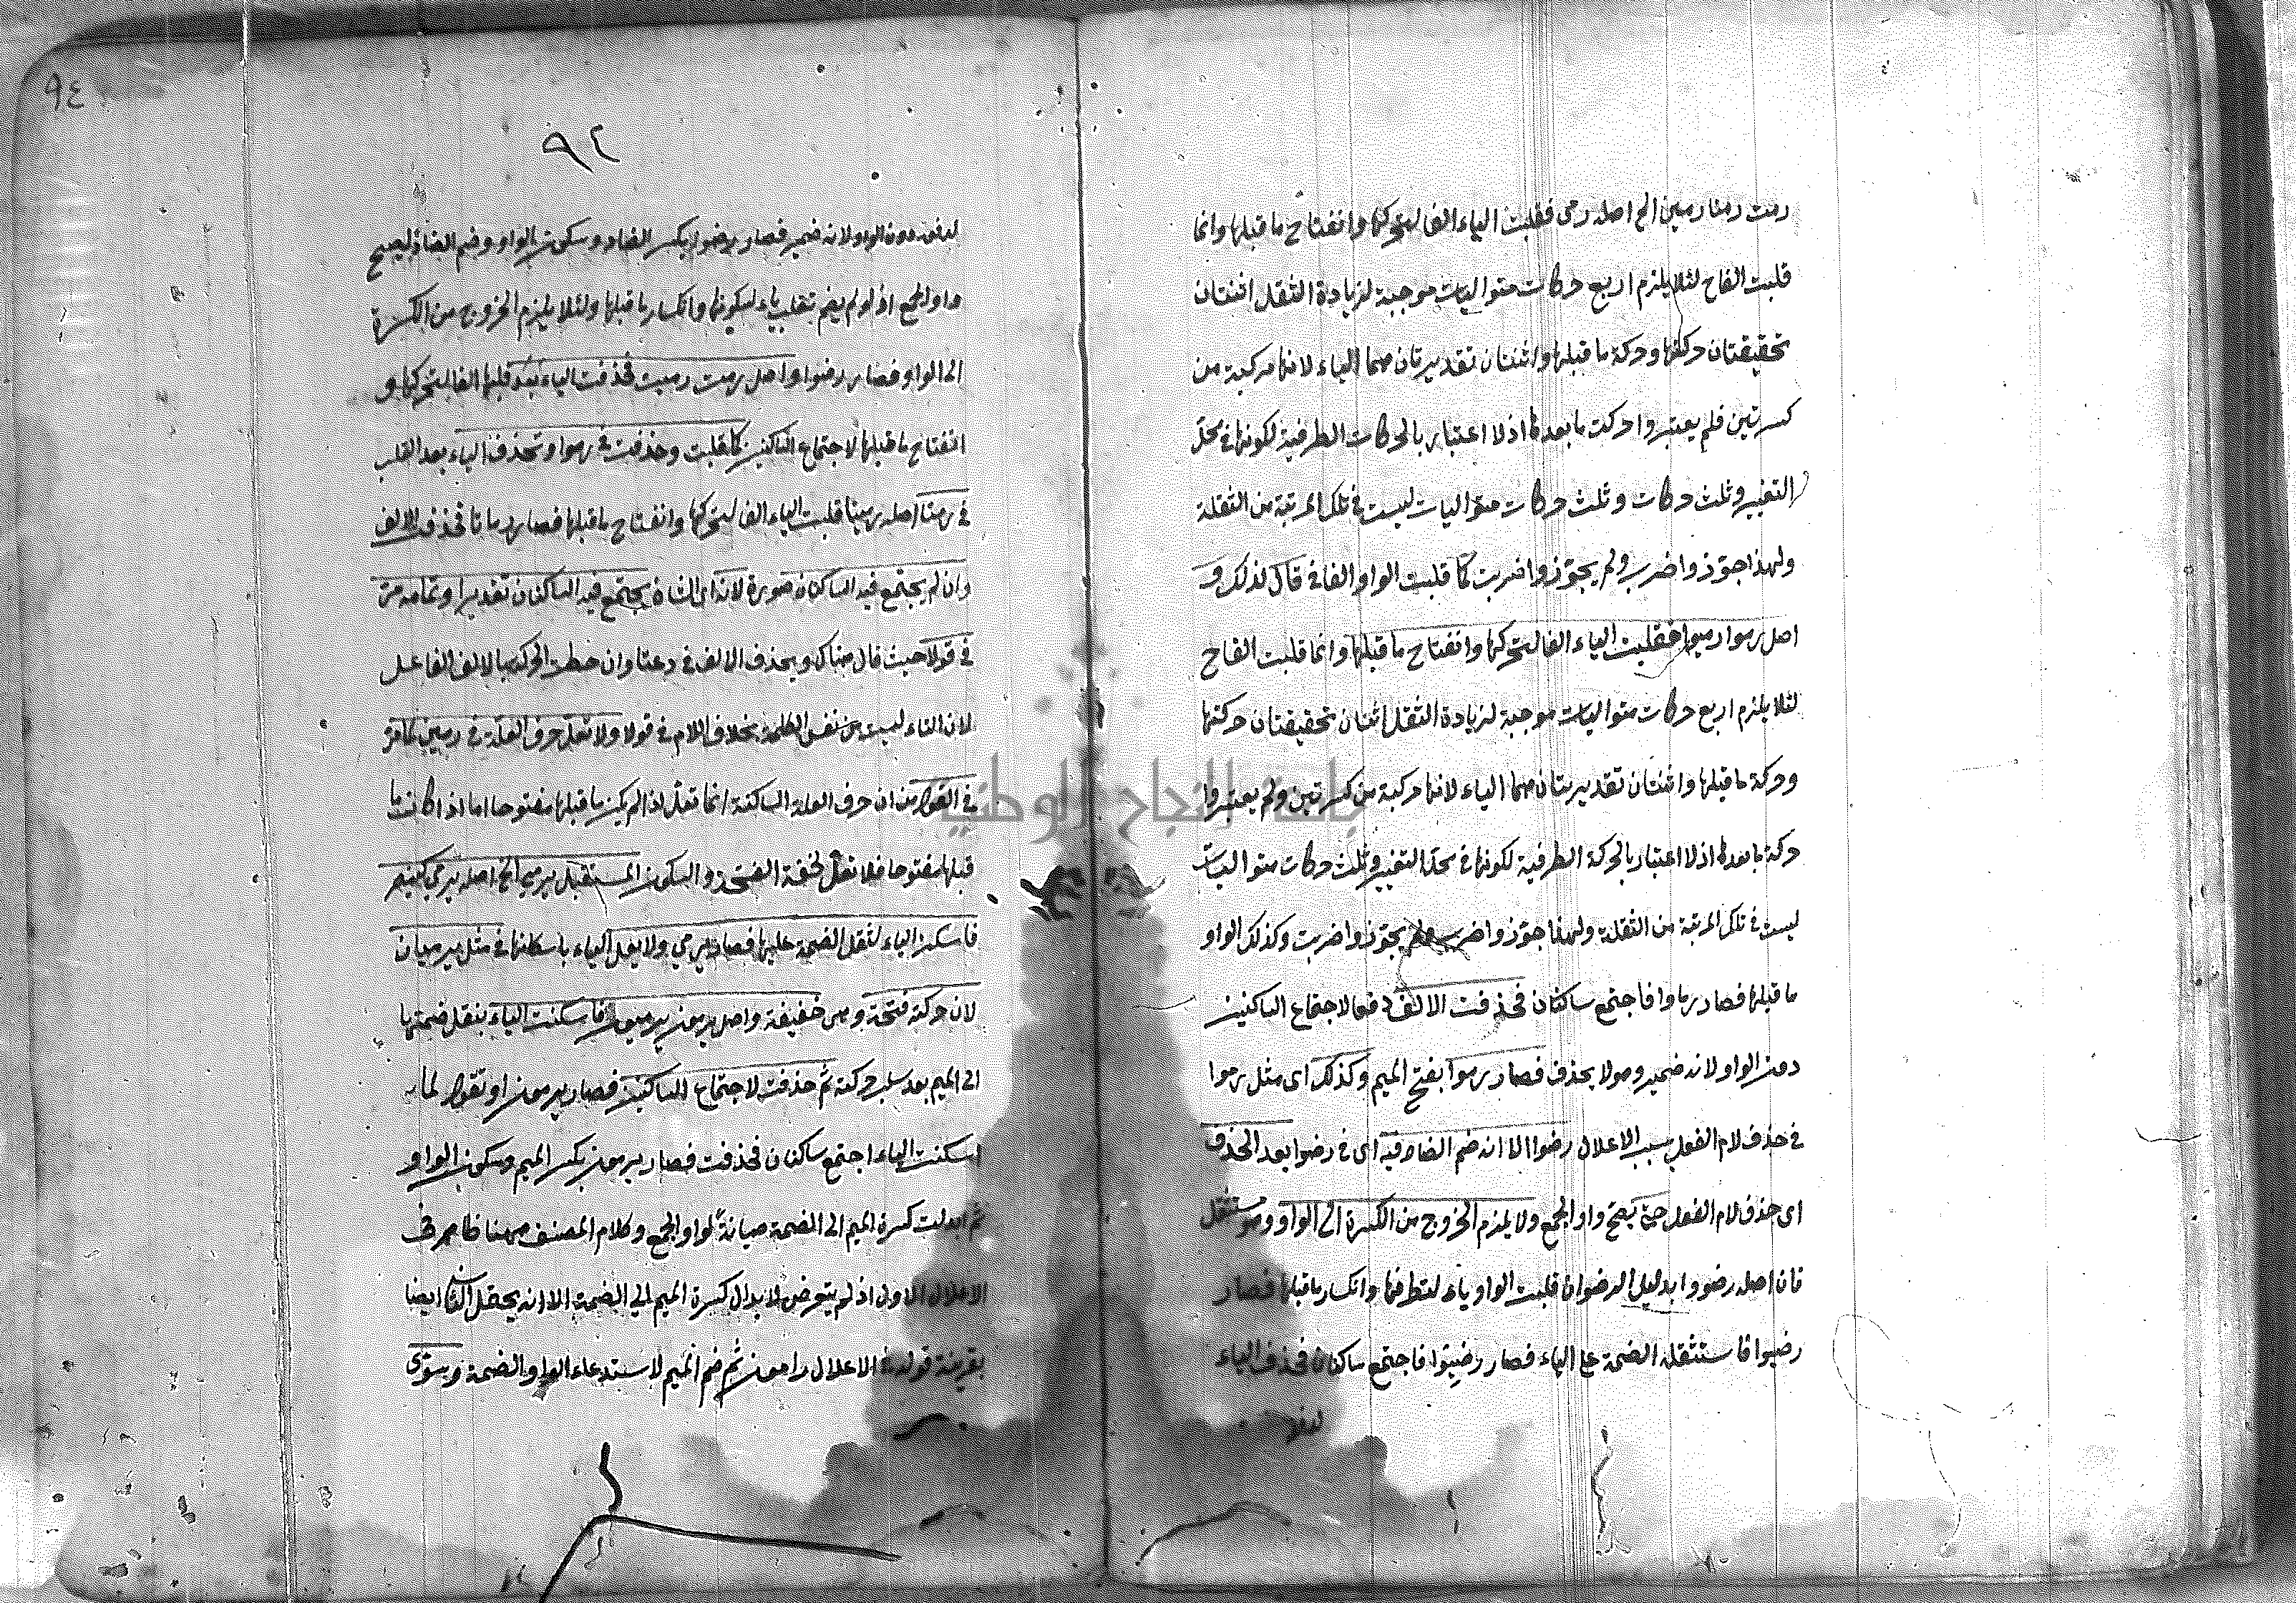 رمت رمتا رمين الخ اصله رمى فقلبت الياء الفا لتحركها وانفتاح ما قبلها وانما
قلبت الفاح لئلا يلزم اربع حركات متواليات موجبة لزيادة الثقل اثنتان
تحقيقتان حركتها وحركة ما قبلها واثنتان تقديريتان هما الياء لانها مركبة من
كسرتين فلم يعتبروا حركت ما بعدها اذ لا اعتبار بالحركات الطرفية لكونها في محل
التغيير وثلث حركات وثلث حركات متواليات ليست في تلك المرتبة من الثقلة
ولهذا جوّزوا ضرب ولم يجوّزوا ضربت كما قلبت الواو الفا في قال لذلك و
اصل رموا رميوا فقلبت الياء الفا لتحركها وانفتاح ما قبلها وانما قلبت الفاح
لئلا يلزم اربع حركات متواليات موجبة لزيادة الثقل اثنتان تحقيقتان حركتها
وحركة ما قبلها واثنتان تقديريتان هما الياء لانها مركبة من كسرتين ولم يعتبروا
حركة ما بعدها اذ لا اعتبار بالحركة الطرفية لكونها في محل التغيير وثلث حركات متواليات
ليست في تلك المرتبة من الثقلة ولهذا جوّزوا ضرب ولم يجوّزوا ضربت وكذلك الواو
ما قبلها فصار رماوا فاجتمع ساكنان فحذفت الالف دفعا لاجتماع الساكنين
دون الواو لانه ضمير وهو لا يحذف فصار رموا بفتح الميم وكذلك اى مثل رموا
في حذف لام الفعل بسبب الاعلال رضوا الا انه ضم الضاد فيه اى في رضوا بعد الحذف
اى حذف لام الفعل حتى يصح واو الجمع ولا يلزم الخروج من الكسرة الى الواو وهو مستثقل
فان اصله رضووا بدليل الرضوان قلبت الواو ياء لتطرفها وانكسار ما قبلها فصار
رضيوا فاستثقلت الضمة على الياء فصار رضيوا فاجتمع ساكنان فحذف الياء
٩٤
٩٢
دون الواو لانه ضمير فصار رضوا بكسر الضاد وسكون الواو وضم الضاد ليصح
واو الجمع اذ لو لم يضم تقلب ياء لسكونها وانكسار ما قبلها ولئلا يلزم الخروج من الكسرة
الى الواو فصار رضوا واصل رمت رميت فحذفت الياء بعد قلبها الفا لتحركها و
انفتاح ما قبلها لاجتماع الساكنين كما قلبت وحذفت في رموا وتحذف الياء بعد القلب
في رمتا اصله رميتا قلبت الياء الفا لتحركها وانفتاح ما قبلها فصار رماتا فحذف الالف
وان لم يجتمع فيه الساكنان صورة لانه اى الشان يجتمع فيه الساكنان تقديرا وتمامه مر
في قولا حيث قال هناك ويحذف الالف في دعتا وان حصلت الحركة بالالف الفاعل
لان التاء ليست من نفس الكلمة بخلاف اللام في قولا ولا تعل حرف العلة في رمين كما مر
في القول من ان حرف العلة الساكنة انما تعل اذا لم يكن ما قبلها مفتوحا اما اذا كانت ما
قبلها مفتوحا فلا تعل لخفة الفتحة والسكون المستقبل يرمى الخ اصله يرمى كينصر
فاسكن الياء لثقل الضمة عليها فصار يرمى ولا يعل الياء باسكانها في مثل يرميان
لان حركة فتحة وهى خفيفة واصل يرمون يرميون فاسكنت الياء بنقل ضمتها
الى الميم بعد سلب حركة ثم حذفت لاجتماع الساكنين فصار يرمون او تقول لما
اسكنت الياء اجتمع ساكنان فحذفت فصار يرمون بكسر الميم وسكون الواو
ثم ابدلت كسرة الميم الى الضمة صيانة لواو الجمع وكلام المصنف ههنا ظاهر في
الاعلال الاول اذ لم يتعرض لابدال كسرة الميم الى الضمة الا انه يحتمل الثانى ايضا
بقرينة قوله في الاعلال رامون ثم ضم الميم لاستدعاء الواو الضمة وسوّى